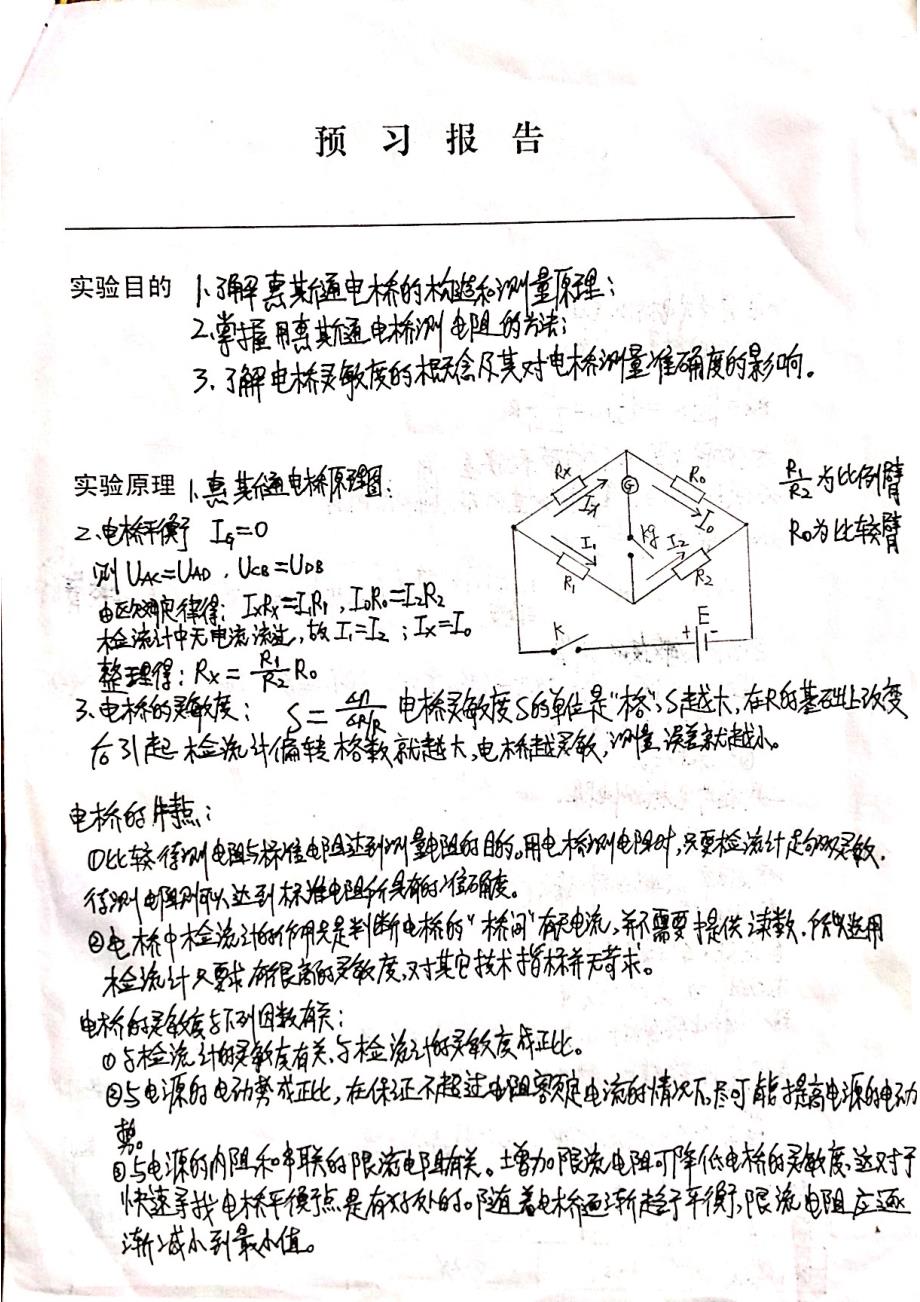 预习报告
实验目的 1.了解惠斯通电桥的构造和测量原理;
2.掌握用惠斯通电桥测电阻的方法;
3.了解电桥灵敏度的概念及其对电桥测量准确度的影响。
实验原理 1.惠斯通电桥原理图:
Rx
G
R0
Ix
I0
Kg
I1
I2
R1
R2
K
+
E
-
R1/R2 为比例臂
R0为比较臂
2.电桥平衡 Ig=0
则 UAC=UAD,UCB=UDB
由欧姆定律得: IxRx=I1R1,I0R0=I2R2
检流计中无电流流过,故I1=I2;Ix=I0
整理得:Rx=R1/R2 R0
3.电桥的灵敏度: S=Δn/(ΔR/R) 电桥灵敏度S的单位是“格”,S越大,在R的基础上改变
后引起检流计偏转格数就越大,电桥越灵敏,测量误差就越小。
电桥的特点:
①比较待测电阻与标准电阻达到测量电阻的目的。用电桥测电阻时,只要检流计足够灵敏,
待测电阻则可以达到标准电阻所具有的准确度。
②电桥中检流计的作用只是判断电桥的“桥间”有无电流,并不需要提供读数,所以选用
检流计只要求有很高的灵敏度,对其它技术指标并无苛求。
电桥的灵敏度与下列因数有关:
①与检流计的灵敏度有关,与检流计的灵敏度成正比。
②与电源的电动势成正比,在保证不超过电阻额定电流的情况下,尽可能提高电源的电动
势。
③与电源的内阻和串联的限流电阻有关。增加限流电阻可降低电桥的灵敏度,这对于
快速寻找电桥平衡点是有好处的。随着电桥逐渐趋于平衡,限流电阻应逐
渐减小到最小值。